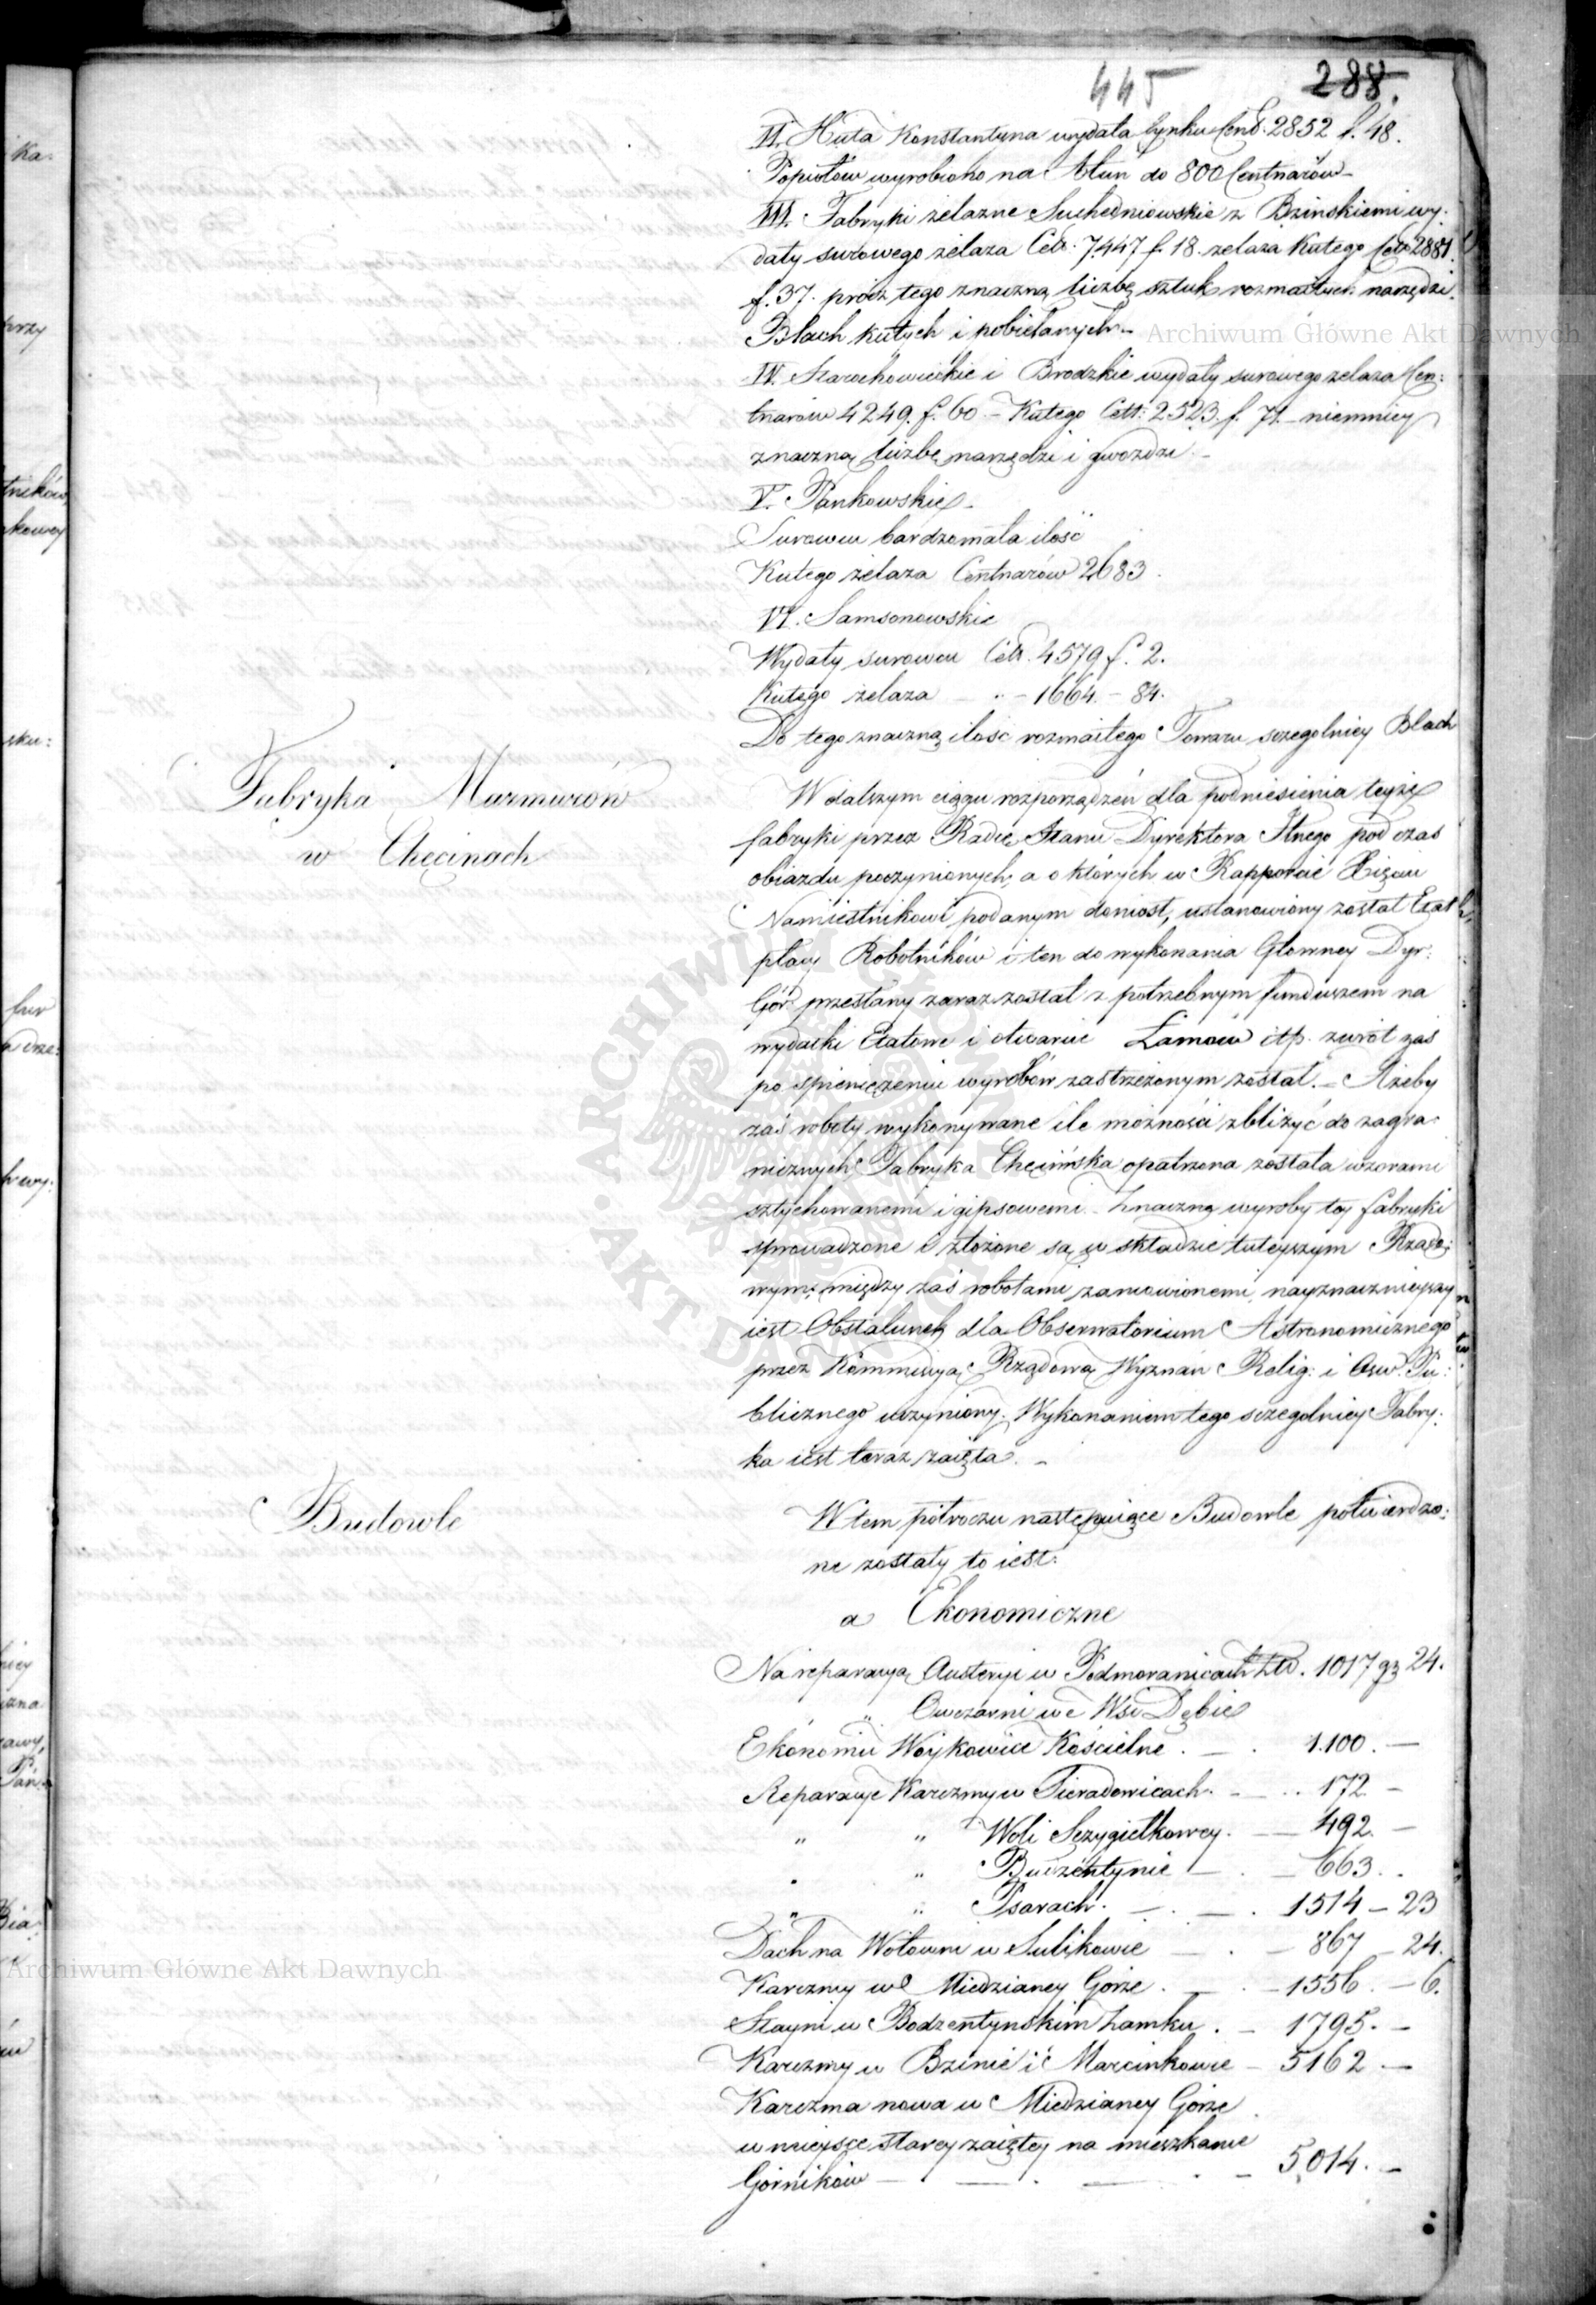 445 288.
II. Huta Konstantyna wydała Cynku Cent. 2852 f. 48.
Popiołów wyrobiono na Ałun do 800 Centnarów –
III. Fabryki żelazne Suchedniowskie z Bzinskiemi wy-
dały surowego żelaza Cetr. 7447 f. 18. żelaza Kutego Cetr 2881.
f. 37. prócz tego znaczną liczbę sztuk rozmaitych narzędzi.
Blach kutych i pobielanych –
IV. Starachowickie i Brodzkie wydały surowego żelaza Cen:
tnarów 4249. f. 60 – Kutego Cetr: 2523. f. 71. – niemniey
znaczną liczbę narzędzi i gwoździ –
V. Pankowskie –
Surowcu bardzo mała ilość
Kutego żelaza Centnarów 2683.
VI. Samsonowskie
Wydały surowcu Cetr. 4579 f. 2.
Kutego żelaza – „ – 1664. – 84.
Do tego znaczną ilość rozmaitego Towaru szczegolniey Blach
Fabryka Marmurów
w Chęcinach
W dalszym ciągu rozporządzeń dla podniesienia teyże
fabryki przez Radcę Stanu Dyrektora Jlnego podczas
obiazdu poczynionych, a o których w Rapporcie Xięciu
Namiestnikowi podanym doniosł, ustanowiony został Etat
płacy Robotników i ten do wykonania Głowney Dyr:
Gór. przesłany zaraz został z potrzebnym funduszem na
wydatki Etatowe i otwarcie Łamów itp. zwrot zaś
po spieniężeniu wyrobów zastrzeżonym został. – Ażeby
zaś roboty wykonywane ile możności zbliżyć do zagra-
nicznych Fabryka Chęcińska opatrzona została wzorami
sztychowanemi i gipsowemi – Znaczne wyroby tey fabryki
sprowadzone i złożone są w składzie tuteyszym Rządo:
wym, między zaś robotami zamowionemi nayznacznieyszym
iest Obstalunek dla Obserwatorium Astronomicznego
przez Kommissyą Rządową Wyznań Relig: i Ośw. Pu:
blicznego uczyniony. Wykonaniem tego szczegolniey Fabry:
ka iest teraz zaięta. –
Budowle
W tem połroczu następuiące Budowle potwierdzo:
ne zostały to iest:
a Ekonomiczne
Na reparacyą Austeryi w Podmoranicach Złp. 1017 gr 24.
„ Owczarni we Wsi Dębie
Ekonomii Woykowice Kościelne . – . 1.100. –
Reparacye Karczmy w Sieradowicach. – . . 172 –
„ „ Woli Szczygiełkowey. – 492. –
„ „ Budzentynie – . – 663. .
„ „ Psarach. – . – . 1514 – 23
Dach na Wołowni w Sulikowie – . – 867 – 24.
Karczmy w Miedzianey Górze . – . – 1556. – 6.
Stayni w Bodzentynskim Zamku . – 1795. –
Karczmy w Bzinie i Marcinkowie – 5162 –
Karczma nowa w Miedzianey Górze
w mieysce starey zaiętey na mieszkanie
Górników – . – . – 5,014. –
Archiwum Główne Akt Dawnych
Archiwum Główne Akt Dawnych